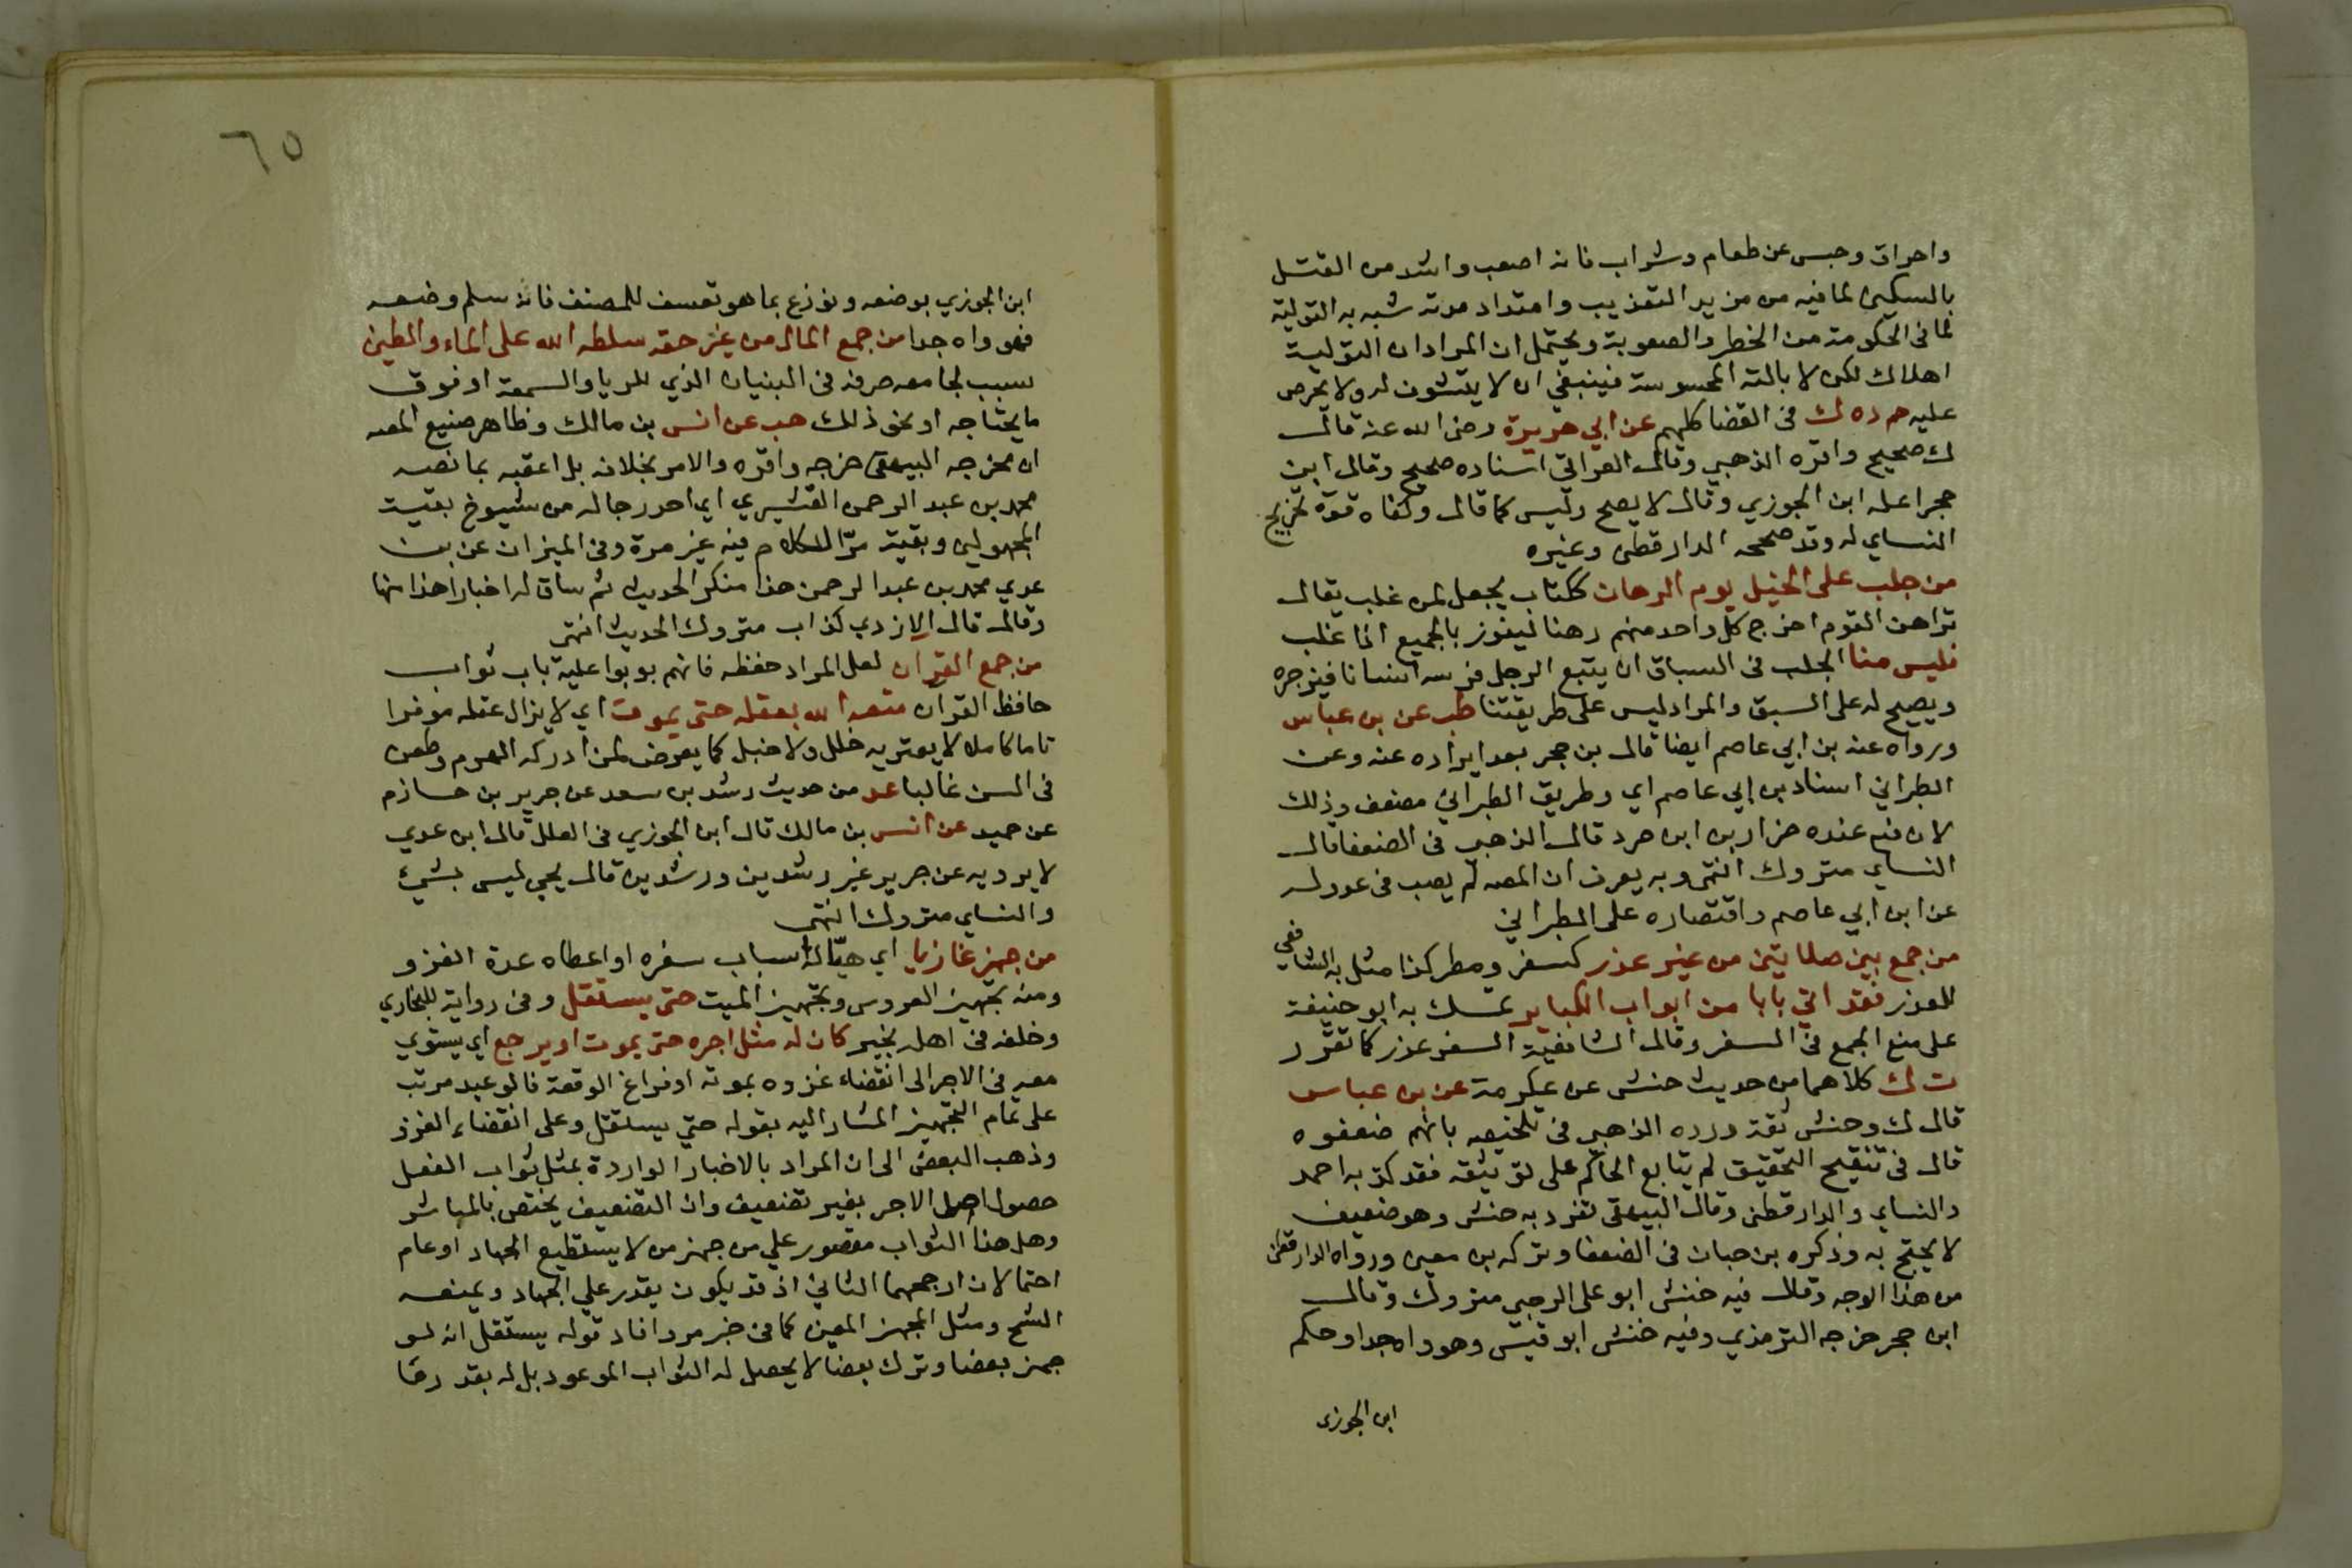 واحراق وحبس عن طعام وشراب فانه اصعب واشد من القتل
بالسكين لما فيه من مزيد التعذيب وامتداد مدته شبه به التولية
لما فى الحكومة من الخطر والصعوبة ويحتمل ان المراد ان التولية
اهلاك لكن لا بالته المحسوسة فينبغي ان لا يتشوف له ولا يحرص
عليه حم د ه ك فى القضا كلهم عن ابي هريرة رضى الله عنه قال
ك صحيح واقره الذهبي وقال العراقي اسناده صحيح وقال ابن
حجر اعله ابن الجوزي وقال لا يصح وليس كما قال وكفاه قوة تخريج
النساي له وقد صححه الدارقطنى وغيره
من جلب على الخيل يوم الرهان ككتاب يجعل لمن غلب يقال
تراهن القوم اخرج كل واحد منهم رهنا ليفوز بالجميع اذا غلب
فليس منا الجلب فى السباق ان يتبع الرجل فرسه انسانا فيزجره
ويصيح له على السبق والمراد ليس على طريقتنا طب عن بن عباس
ورواه عنه بن ابي عاصم ايضا قال بن حجر بعد ايراده عنه وعن
الطبراني اسناد بن ابي عاصم اى وطريق الطبراني مضعف وذلك
لان فيه عنده ضرار بن ابن صرد قال الذهبي فى الضعفا قال
النساي متروك انتهى وبه يعرف ان المصه لم يصب فى عدوله
عن ابن ابي عاصم واقتصاره على الطبراني
من جمع بين صلايتين من غير عذر كسفر ومطر كذا مثل به الشافعي
للعذر فقد اتي بابا من ابواب الكباير تمسك به ابو حنيفة
على منع الجمع فى السفر وقال الشافعية السفر عذر كما تقرر
ت ك كلاهما من حديث حنش عن عكرمة عن بن عباس
قال ك وحنش ثقة ورده الذهبي فى تلخيصه بانهم ضعفوه
قال فى تنقيح التحقيق لم يتابع الحاكم على توثيقه فقد كذبه احمد
والنساي والدارقطنى وقال البيهقى تفرد به حنش وهو ضعيف
لا يحتج به وذكره بن حبان فى الضعفا وتركه بن معين ورواه الدارقطنى
من هذا الوجه وقال فيه حنش ابو على الرحبي متروك وقال
ابن حجر خرجه الترمذي وفيه حنش ابو قيس وهو واه جدا وحكم
ابن الجوزى
٦٥
ابن الجوزي بوضعه ونوزع بما هو تعسف للمصنف فانه سلم وضعه
فهو واه جدا من جمع المال من غير حقه سلطه الله على الماء والطين
بسبب لجامعه صرفه فى البنيان الذي للريا والسمعة او فوق
ما يحتاجه او نحو ذلك هب عن انس بن مالك وظاهر صنيع المصه
ان مخرجه البيهقى خرجه واقره والامر بخلافه بل اعقبه بما نصه
محمد بن عبد الرحمن القشيري اي احد رجاله من شيوخ بقية
المجهولين وبقية مرّ الكلام فيه غير مرة وفى الميزان عن بن
عدي محمد بن عبد الرحمن هذا منكر الحديث ثم ساق له اخبارا هذا منها
وقال قال الازدي كذاب متروك الحديث انتهى
من جمع القران لعل المراد حفظه فانهم بوبوا عليه باب ثواب
حافظ القران متعه الله بعقله حتى يموت اي لا يزال عقله موفرا
تاما كاملا لا يعتريه خلل ولا خبل كما يعرض لمن ادركه الهرم وطعن
فى السن غالبا عد من حديث رشد بن سعد عن جرير بن حازم
عن حميد عن انس بن مالك قال ابن الجوزي فى العلل قال ابن عدي
لا يرويه عن جرير غير رشدين ورشدين قال يحيى ليس بشيء
والنساي متروك انتهى
من جهز غازيا اي هيّا له اسباب سفره او اعطاه عدة الغزو
ومنه تجهيز العروس وتجهيز الميت حتى يستقل وفى رواية للبخاري
وخلفه فى اهله بخير كان له مثل اجره حتى يموت او يرجع اي يستوي
معه فى الاجر الى انقضاء غزوه بموته او فراغ الوقعة فالوعيد مرتب
على تمام التجهيز المشار اليه بقوله حتي يستقل وعلى انقضاء الغزو
وذهب البعض الى ان المراد بالاخبار الواردة بمثل ثواب الفعل
حصول اصل الاجر بغير تضعيف وان التضعيف يختص بالمباشر
وهل هذا الثواب مقصور علي من جهز من لا يستطيع الجهاد او عام
احتمالان ارجحهما الثاني اذ قد يكون يقدر علي الجهاد ويمنعه
الشح ومثل المجهز المعين كما فى خبر مر وافاد قوله يستقل انه لو
جهز بعضا وترك بعضا لا يحصل له الثواب الموعود بل له بقدر ما